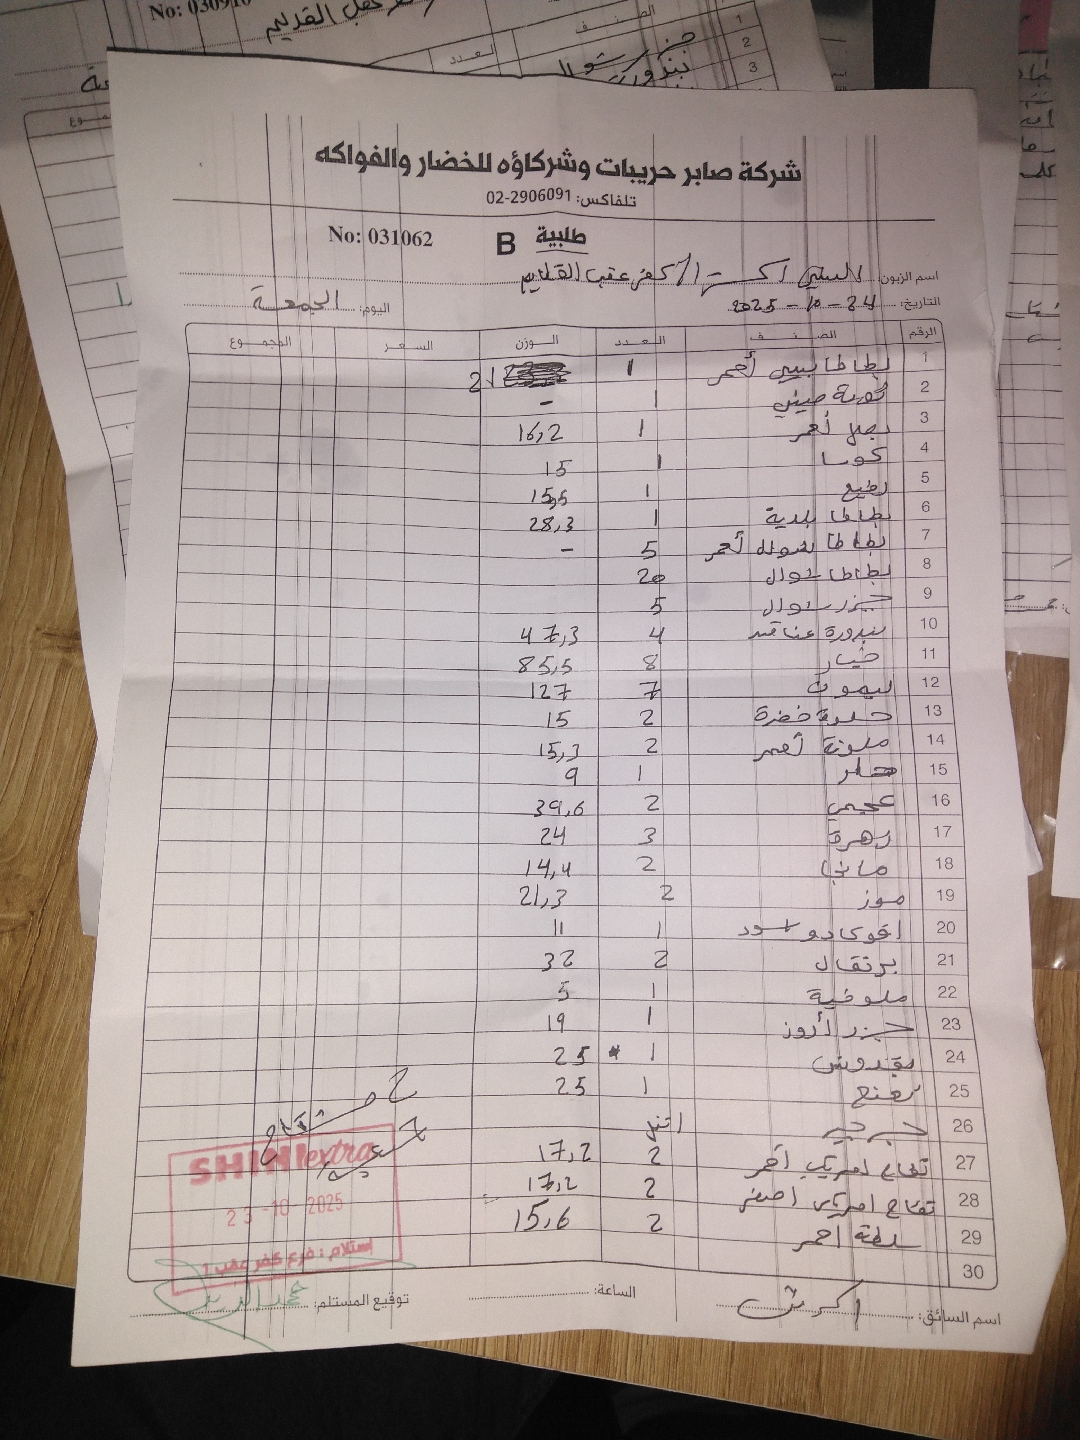 No: 030910
شركة صابر حريبات وشركاؤه للخضار والفواكه
تلفاكس: 02-2906091
No: 031062 B طلبية
اسم الزبون: اكسترا / كفر عقب القديم
التاريخ: 24 - 10 - 2025 اليوم: الجمعة
الرقم الصنف العدد الوزن السعر المجموع
1 بطاطا بيبي أحمر 1 21
2 صيني 1 -
3 بصل أحمر 1 16,2
4 كوسا 1 15
5 1 15,5
6 بطاطا بلدية 1 28,3
7 بطاطا شوال أحمر 5 -
8 بطاطا شوال 20
9 جزر شوال 5
10 بندورة عناقيد 4 47,3
11 خيار 8 85,5
12 ليمون 7 127
13 حلوة خضرة 2 15
14 ملونة أحمر 2 15,3
15 1 9
16 عجمي 2 39,6
17 زهرة 3 24
18 مانجا 2 14,4
19 موز 2 21,3
20 افوكادو اسود 1 11
21 برتقال 2 32
22 ملوخية 1 5
23 جزر 1 19
24 بقدونس 1 25
25 نعنع 1 25
26 جرجير
27 تفاح امريكي احمر 2 17,2
28 تفاح امريكي اصفر 2 17,2
29 سلطة احمر 2 15,6
30
SHINI extra
23-10-2025
استلام : فرع كفر عقب 1
اسم السائق: الساعة: توقيع المستلم: